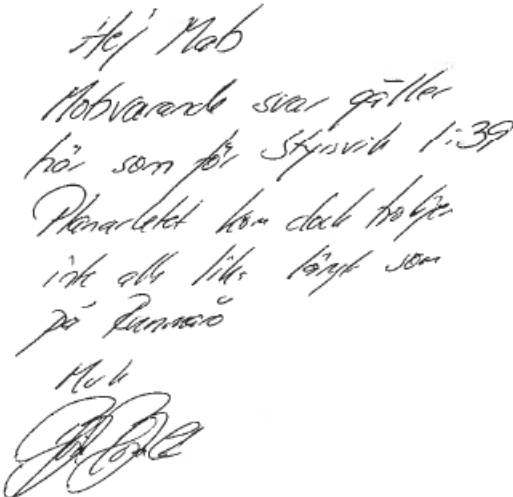 Hej Mab
Motsvarande svar gäller
här som för Styrsvik 1:39
Planarbetet kom dock troligen
inte alls lika långt som
på Runmarö
Mvh